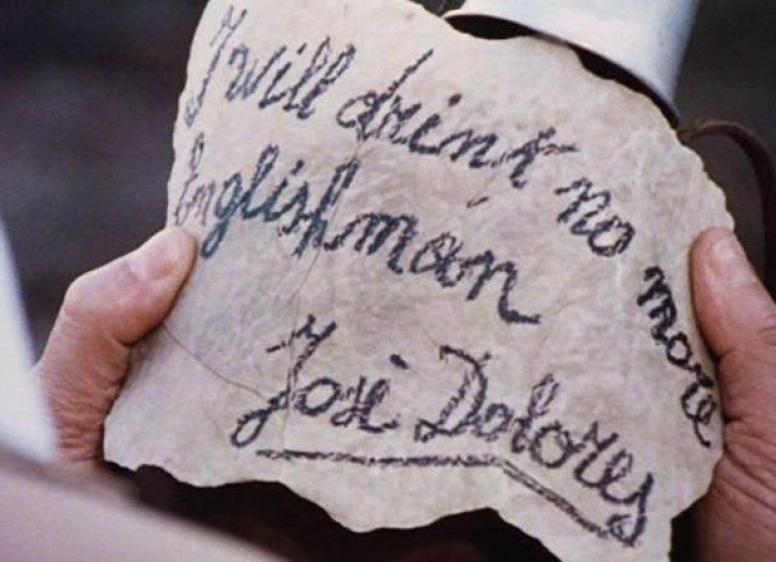 I will drink no more
Englishman
José Dolores